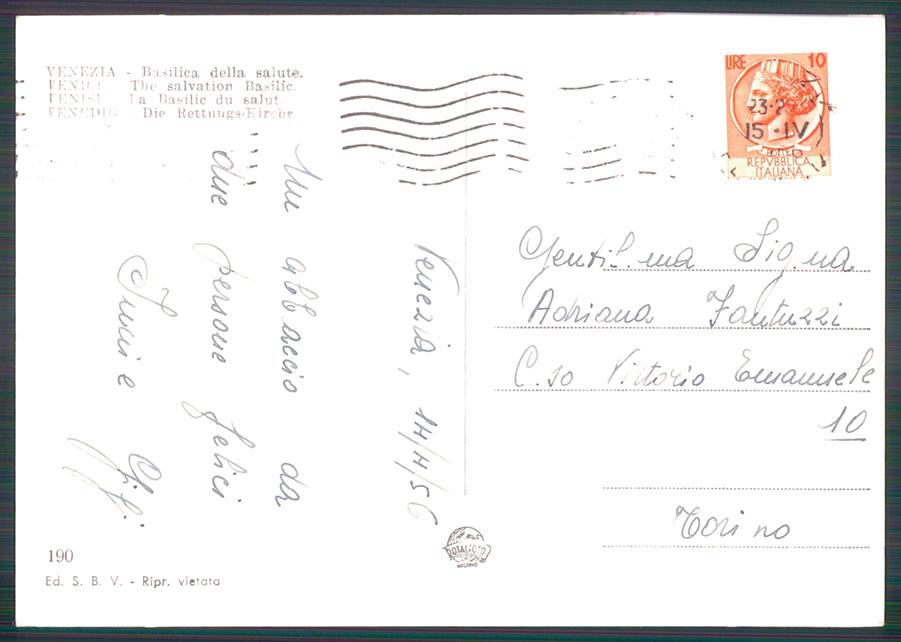 VENEZIA - Basilica della salute.
VENICE The salvation Basilic.
VENISE La Basilic du salut
VENEDIG - Die Rettungs-Kirche
LIRE 10
23-2
15-IV
POSTE
REPVBBLICA
ITALIANA
Venezia, 14/4/56
Un abbaccio da
due persone felici
Gentil.ma Sig.na
Adriana Fantuzzi
C.so Vittorio Emanuele
10
Torino
190
Ed. S. B. V. - Ripr. vietata
DOTALFOTO
MILANO